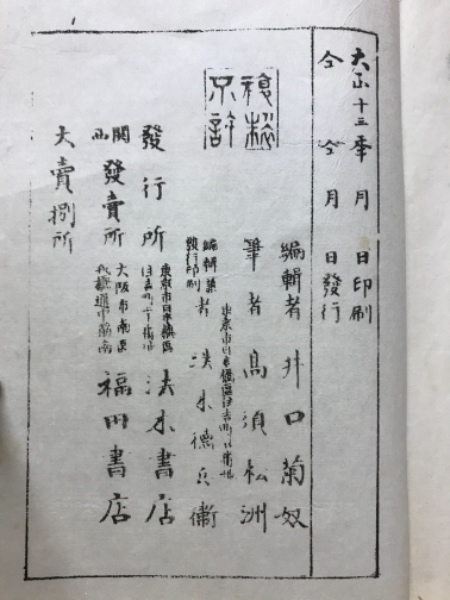 大正十三年 月 日印刷
仝 仝 月 日發行
複製
不許
編輯者 井口菊奴
筆者 高須松洲
東京市日本橋區住吉町
編輯兼
發行印刷
者 法木德兵衞
發行所
東京市日本橋區
住吉町
法木書店
関西
發賣所
大阪市南區
福田書店
大賣捌所